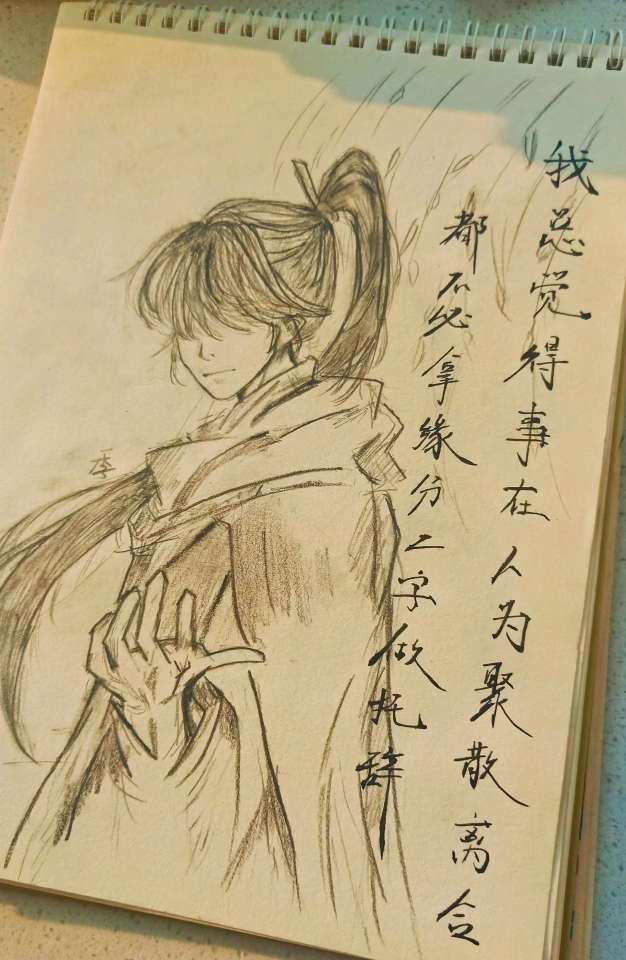 我总觉得事在人为聚散离合
都不必拿缘分二字做托辞
李